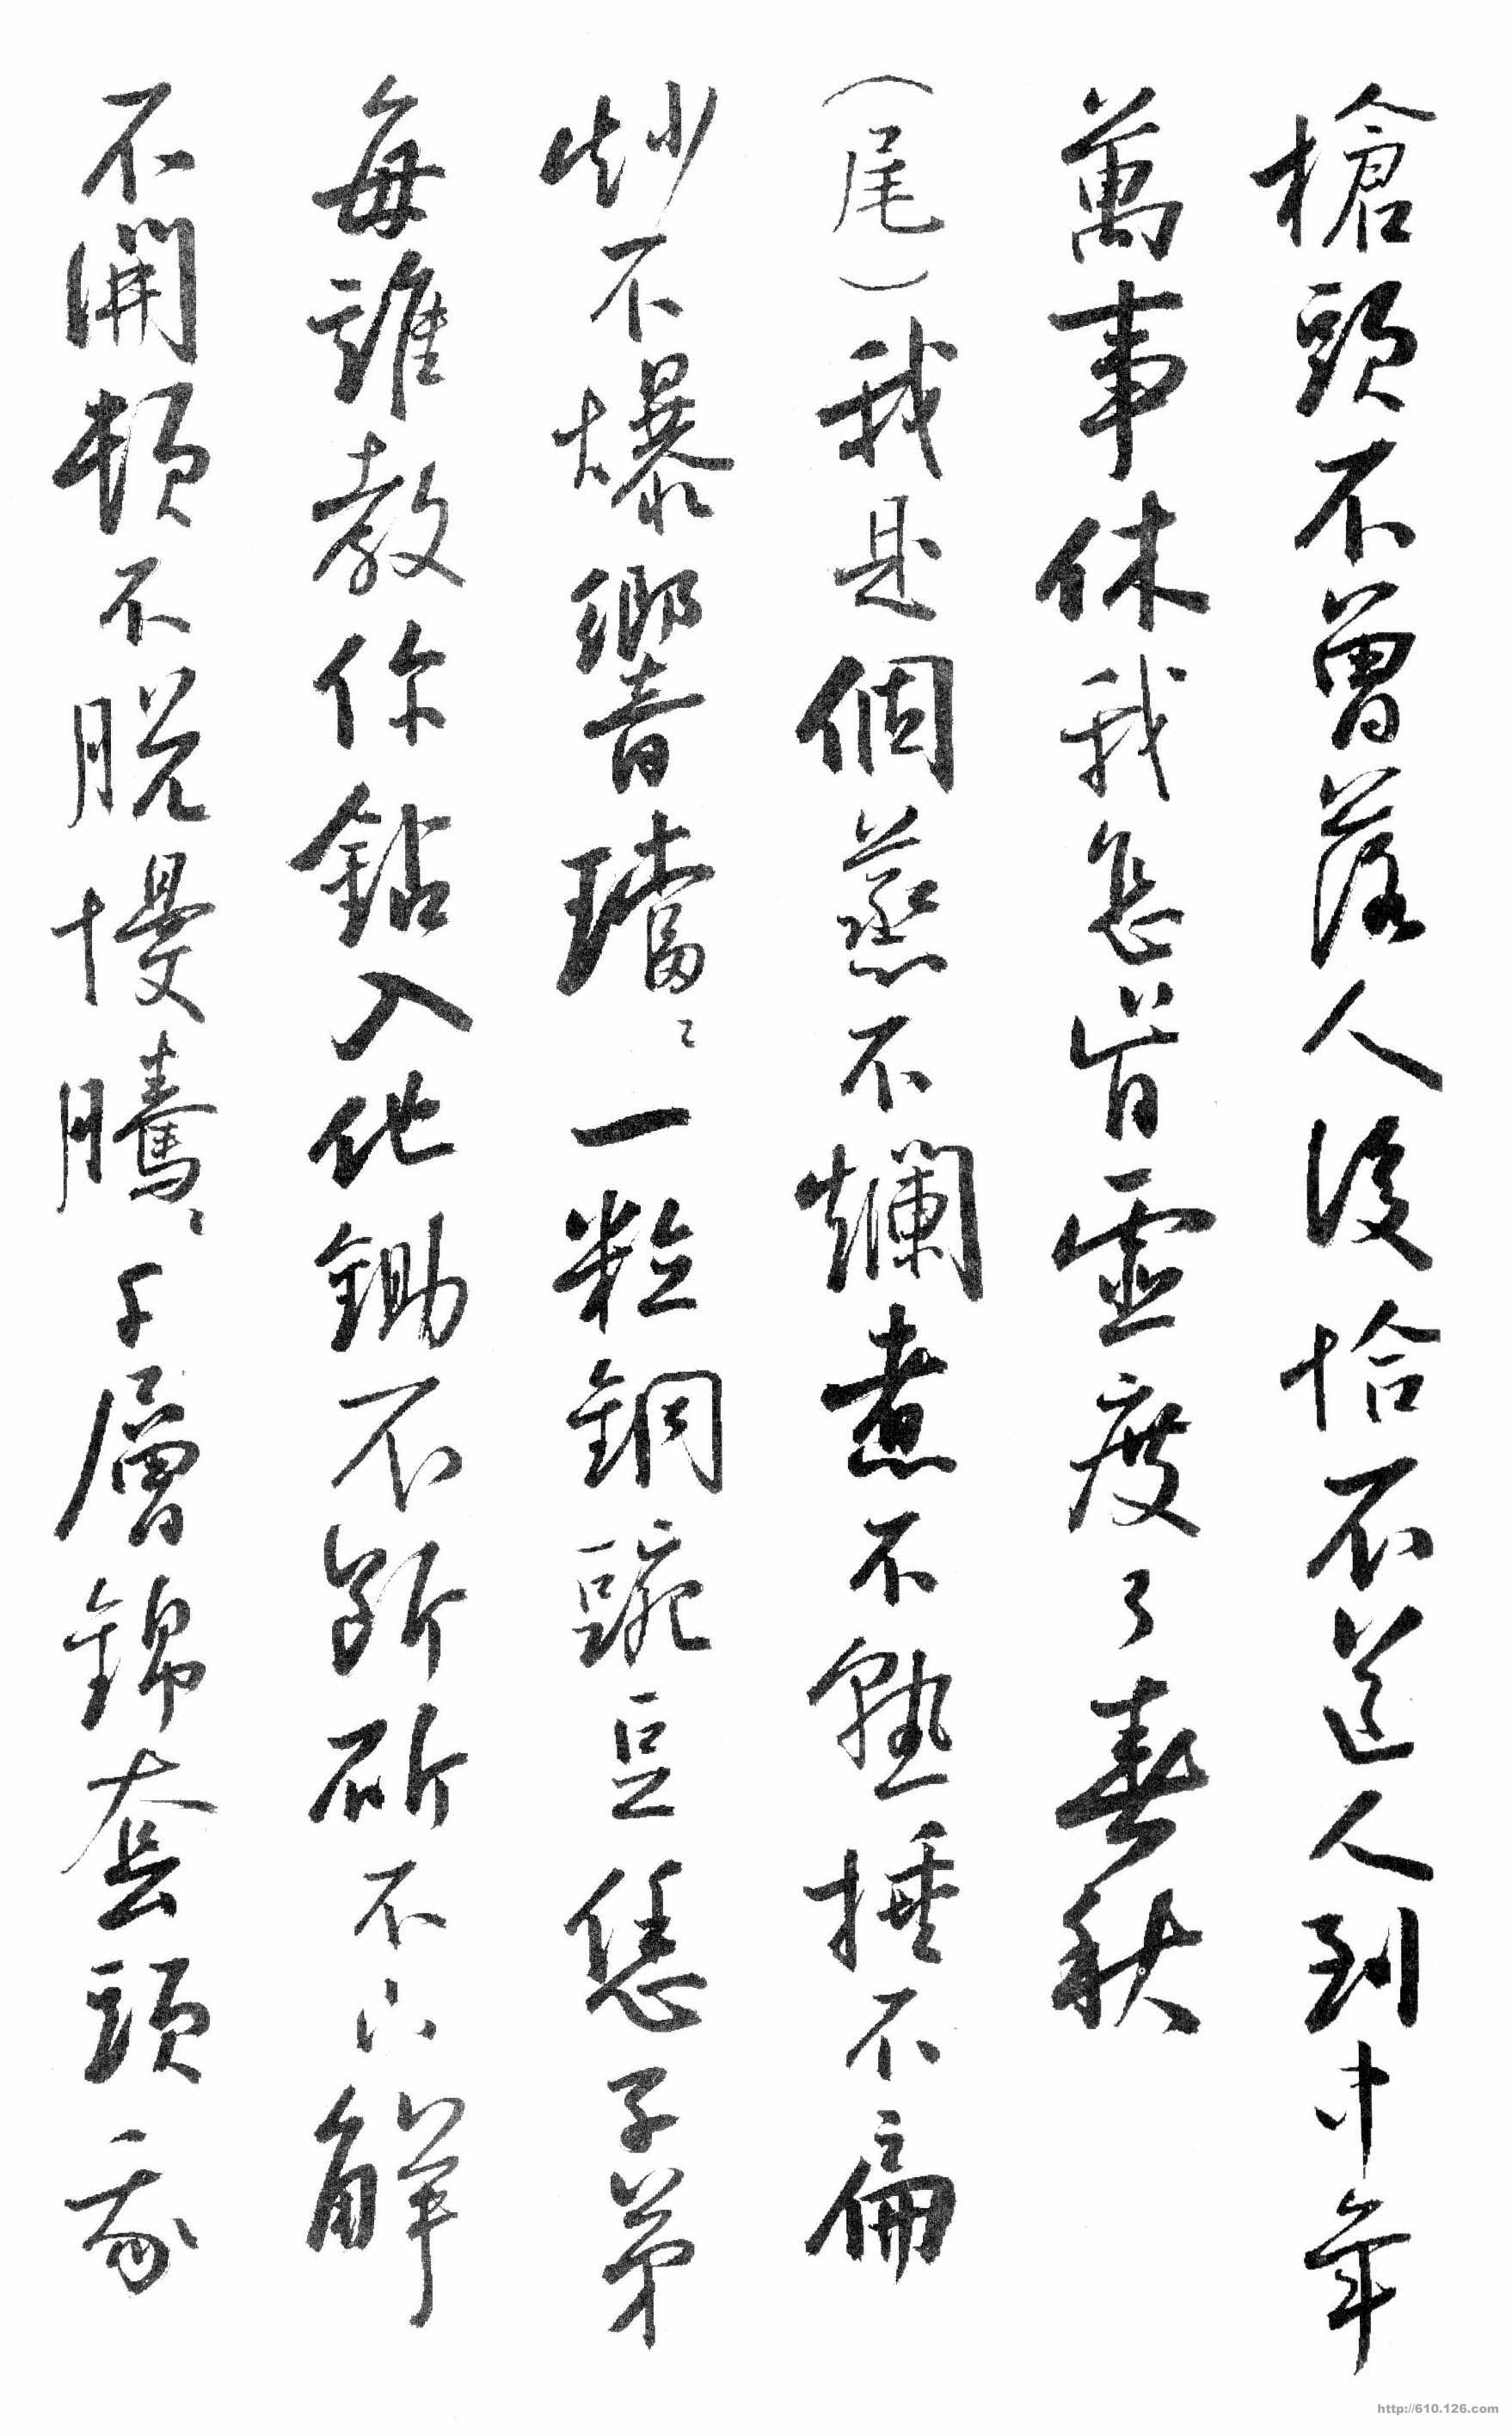 槍頭不曾落人後恰不道人到中年
萬事休我怎肯虛度了春秋
（尾）我是個蒸不爛煮不熟捶不扁
炒不爆響璫〻一粒銅豌豆恁子弟
每誰教你鑽入他鋤不斷斫不下解
不開頓不脫慢騰〻千層錦套頭我
http://610.126.com